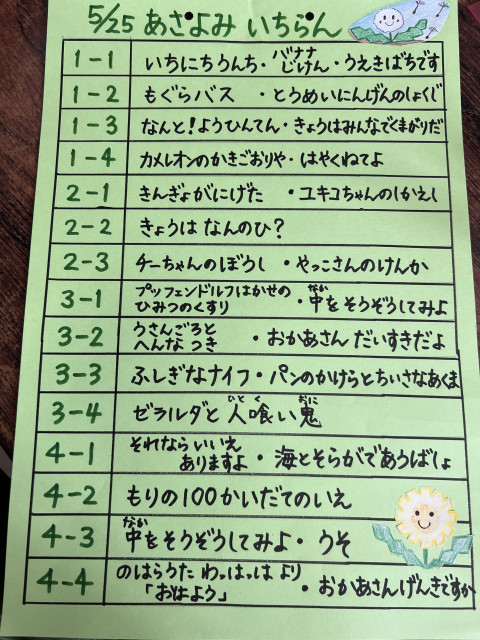 5/25 あさよみ いちらん
1-1 いちにちうんち・バナナじけん・うえきばちです
1-2 もぐらバス ・とうめいにんげんのしょくじ
1-3 なんと!ようひんてん・きょうはみんなでくまがりだ
1-4 カメレオンのかきごおりや・はやくねてよ
2-1 きんぎょがにげた ・ユキコちゃんのしかえし
2-2 きょうは なんのひ?
2-3 チーちゃんのぼうし ・やっこさんのけんか
3-1 プッフェンドルフはかせの
ひみつのくすり ・中をそうぞうしてみよ
なか
3-2 うさんごろと
へんな つき ・おかあさん だいすきだよ
3-3 ふしぎなナイフ・パンのかけらとちいさなあくま
3-4 ゼラルダと 人喰い鬼
ひと く おに
4-1 それなら いいえ
ありますよ ・海とそらがであうばしょ
4-2 もりの100かいだてのいえ
4-3 中をそうぞうしてみよ・うそ
なか
4-4 のはらうた わっはっは より
「おはよう」 ・おかあさんげんきですか